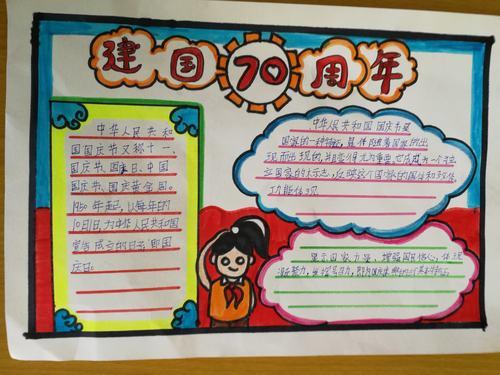 建国70周年
中华人民共和
国国庆节又称十一、
国庆节、国庆日、中国
国庆节、国庆黄金周。
1950年起，以每年的
10月1日为中华人民共和国
宣告成立的日子，即国
庆日。
中华人民共和国国庆节是
国家的一种特征，是伴随着国家的出
现而出现的，并变得尤为重要。它成为一个独
立国家的标志，反映这个国家的国体和政体。
功能体现
显示国家力量、增强国民信心，体现
凝聚力，发挥号召力，即为国庆庆典的三个基本特征。